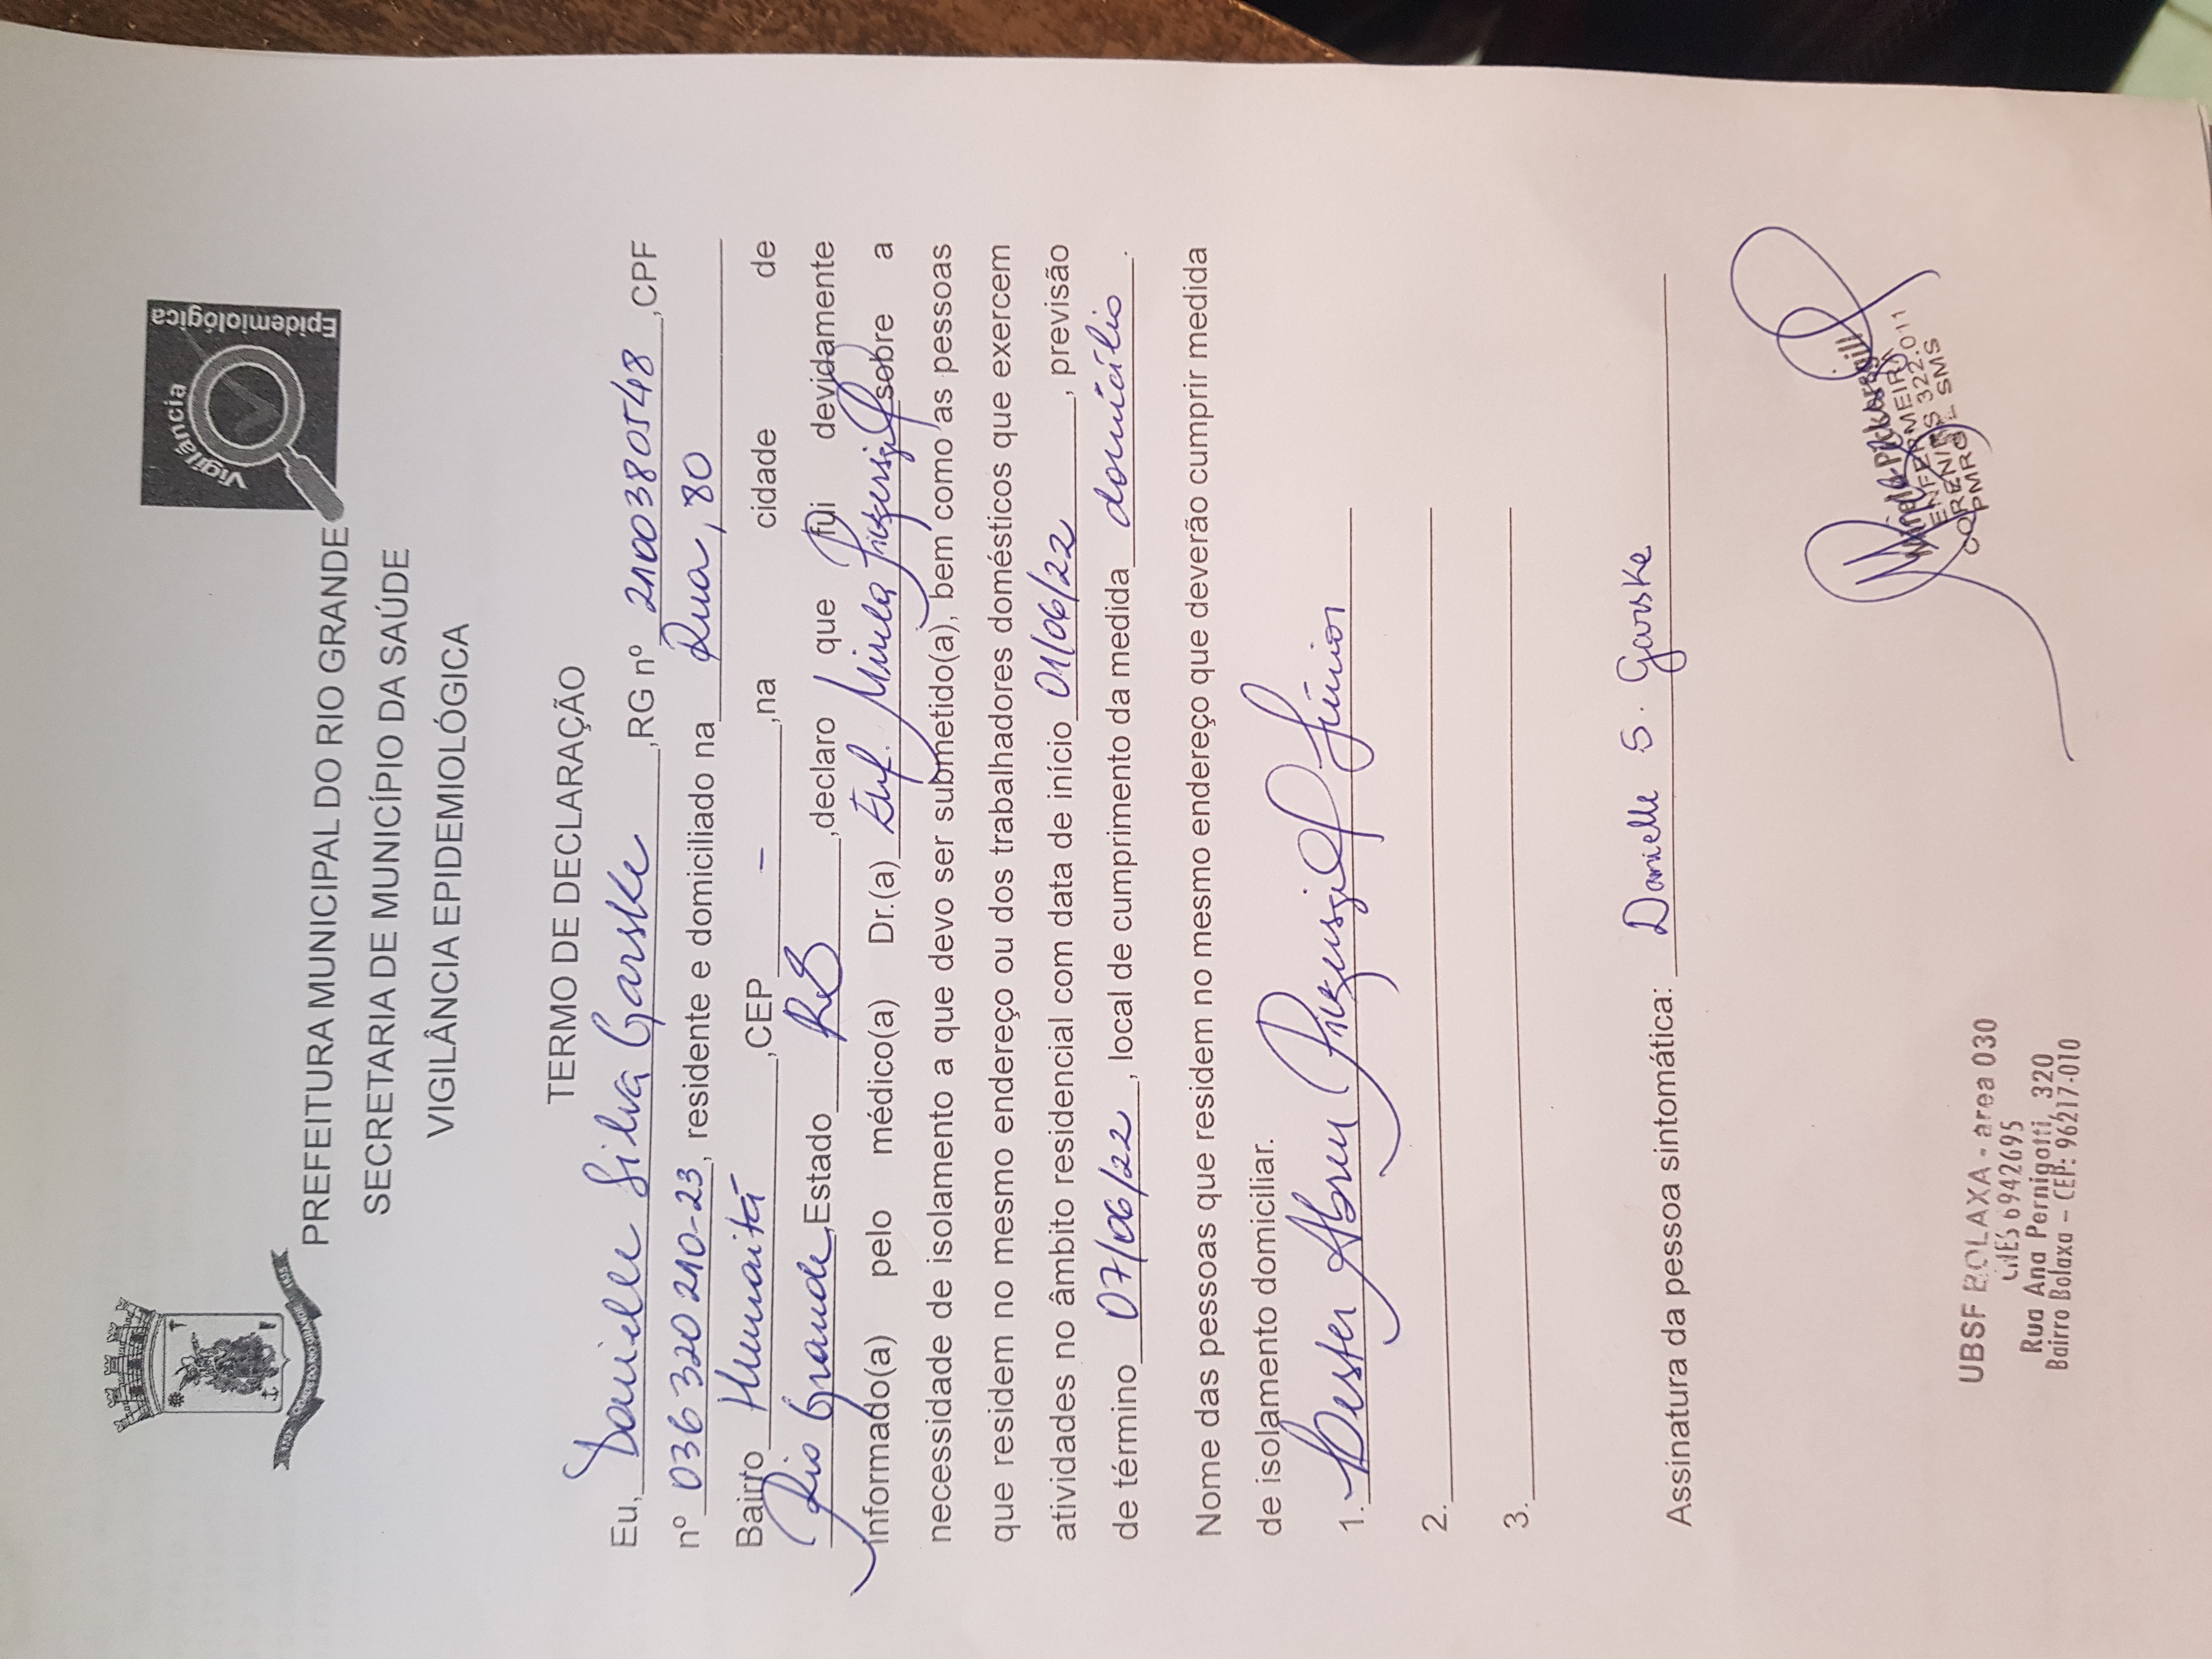 1737 CIDADE DO RIO GRANDE 1835
Vigilância
Epidemiológica
PREFEITURA MUNICIPAL DO RIO GRANDE
SECRETARIA DE MUNICÍPIO DA SAÚDE
VIGILÂNCIA EPIDEMIOLÓGICA
TERMO DE DECLARAÇÃO
Eu, Danielle Silva Garske ,RG nº 2100380548 ,CPF
nº 036 320 210-23, residente e domiciliado na Rua, 80
Bairro Humaitá ,CEP - ,na cidade de
Rio Grande,Estado RS ,declaro que fui devidamente
informado(a) pelo médico(a) Dr.(a) Enf. Mirela Pickersgill sobre a
necessidade de isolamento a que devo ser submetido(a), bem como as pessoas
que residem no mesmo endereço ou dos trabalhadores domésticos que exercem
atividades no âmbito residencial com data de início 01/06/22 , previsão
de término 07/06/22 , local de cumprimento da medida domicílio .
Nome das pessoas que residem no mesmo endereço que deverão cumprir medida
de isolamento domiciliar.
1. Abreu Pickersgill Júnior
2.
3.
Assinatura da pessoa sintomática: Danielle S. Garske
Mirela Pickersgill
ENFERMEIRA
COREN/RS 322.011
PMRG - SMS
UBSF BOLAXA - área 030
CNES 6942695
Rua Ana Pernigotti, 320
Bairro Bolaxa – CEP: 96217-010